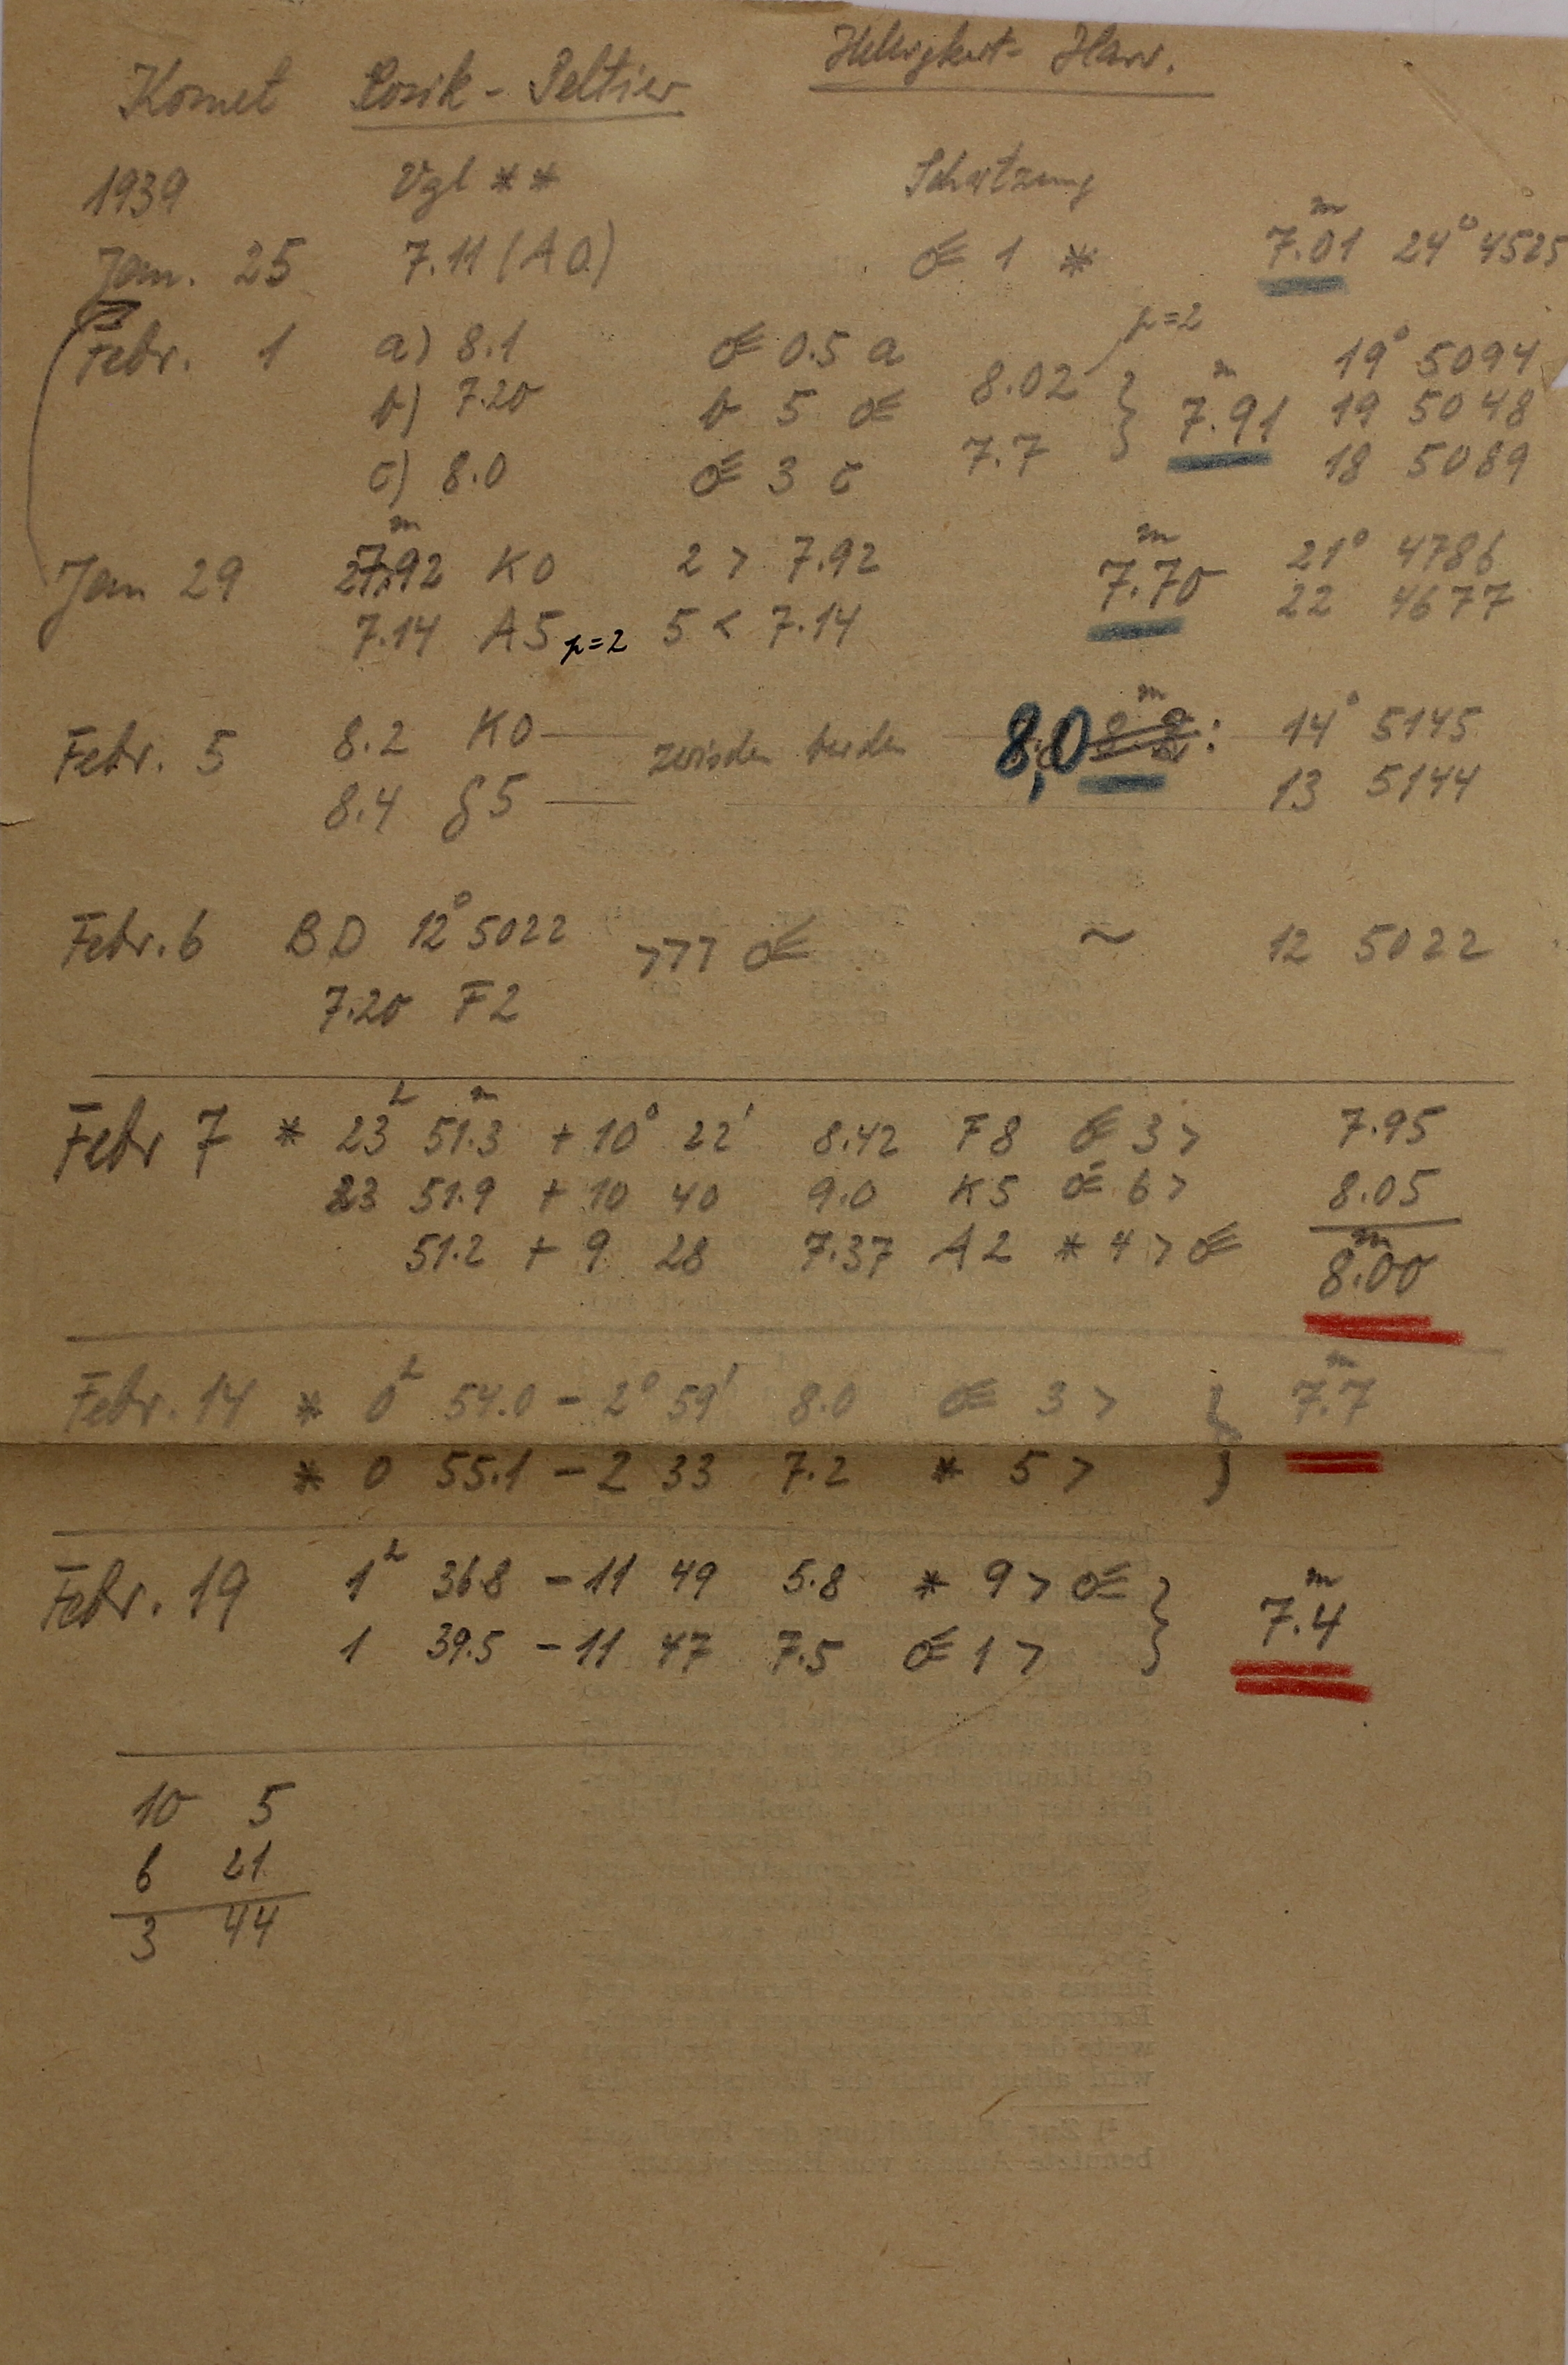 Komet Cosik - Peltier Helligkeit - Harv.
1939 Vgl ** Schätzung
Jan. 25 7.11 (A0) ☄ 1 * 7.01ᵐ 24° 4525
Febr. 1 a) 8.1 ☄ 0.5 a 8.02 p=2 19° 5094
b) 7.20 b 5 ☄ } 7.91ᵐ 19 5048
c) 8.0 ☄ 3 c 7.7 18 5089
Jan 29 7.92ᵐ K0 2 > 7.92 7.70ᵐ 21° 4786
7.14 A5 p=2 5 < 7.14 22 4677
Febr. 5 8.2 K0 — zwischen beiden — 8,0 ᵐ: 14° 5145
8.4 G5 — 13 5144
Febr. 6 BD 12° 5022 >>> ☄ ~ 12 5022
7.20 F2
Febr 7 * 23ʰ 51.3ᵐ + 10° 22' 8.42 F8 ☄ 3 > 7.95
23 51.9 + 10 40 9.0 K5 ☄ 6 > 8.05
51.2 + 9 28 7.37 A2 * 4 > ☄ 8.00ᵐ
Febr. 14 * 0ʰ 54.0 - 2° 59' 8.0 ☄ 3 > } 7.7ᵐ
* 0 55.1 - 2 33 7.2 * 5 >
Febr. 19 1ʰ 36.8 - 11 49 5.8 * 9 > ☄ } 7.4ᵐ
1 39.5 - 11 47 7.5 ☄ 1 >
10 5
6 21
3 44